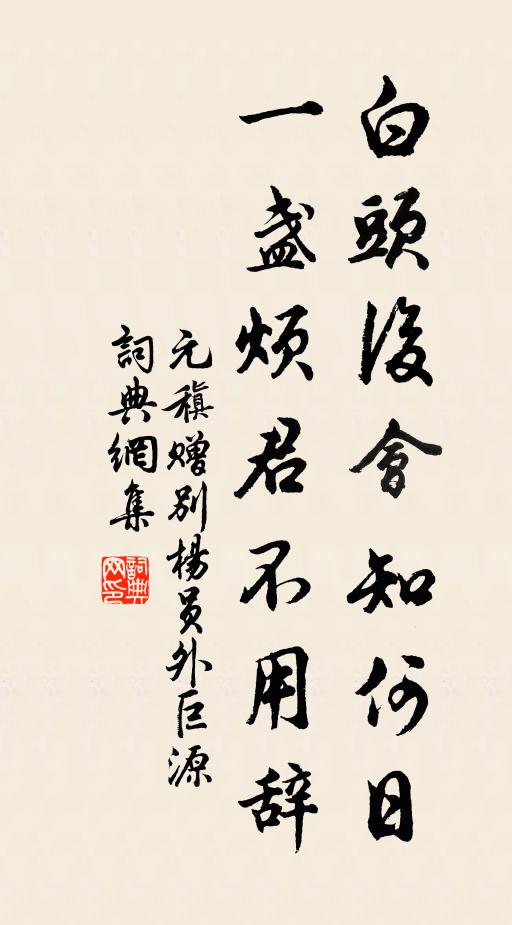 白頭後會知何日
一盞煩君不用辞
元稹贈别楊員外巨源
詞典網集
詞典网印